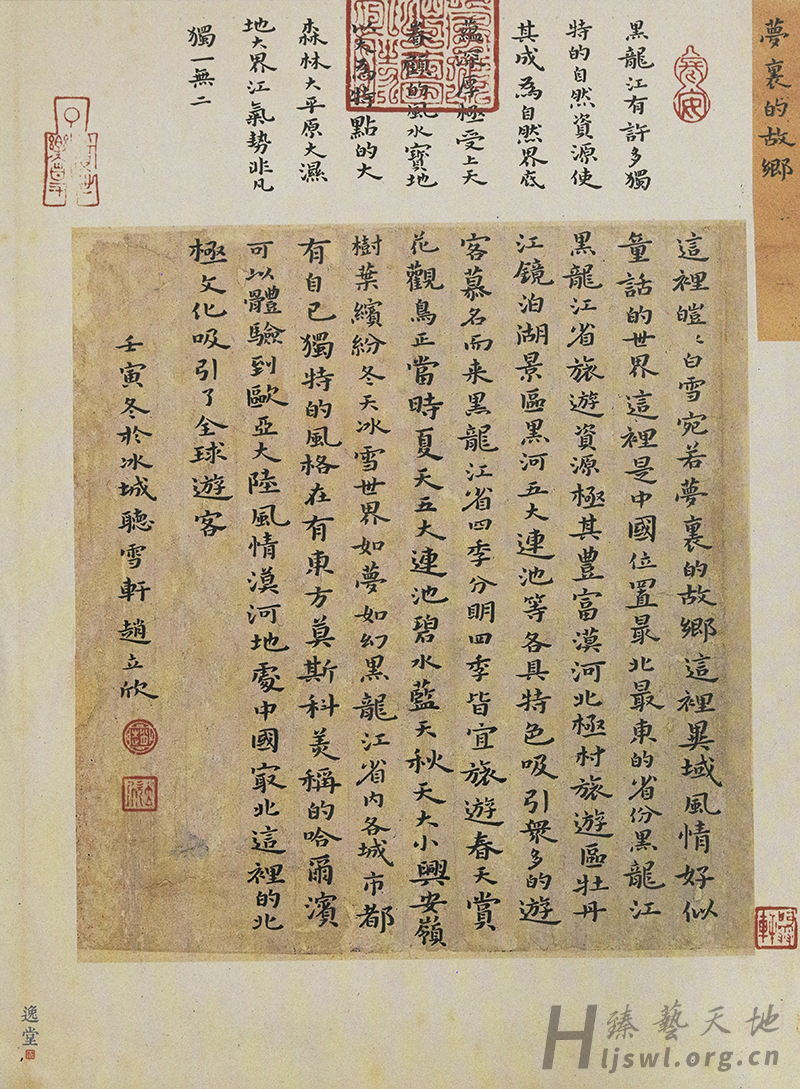 夢裏的故鄉
黑龍江有許多獨
特的自然資源使
其成為自然界底
蘊深厚極受上天
眷顧的風水寶地
以大為特點的大
森林大平原大濕
地大界江氣勢非凡
獨一無二
這裡皚〻白雪宛若夢裏的故鄉這裡異域風情好似
童話的世界這裡是中國位置最北最東的省份黑龍江
黑龍江省旅遊資源極其豊富漠河北極村旅遊區牡丹
江鏡泊湖景區黑河五大連池等各具特色吸引眾多的遊
客慕名而来黑龍江省四季分明四季皆宜旅遊春天賞
花觀鳥正當時夏天五大連池碧水藍天秋天大小興安嶺
樹葉繽紛冬天冰雪世界如夢如幻黑龍江省内各城市都
有自己獨特的風格在有東方莫斯科美稱的哈爾濱
可以體驗到歐亞大陸風情漠河地處中國最北這裡的北
極文化吸引了全球遊客
壬寅冬於冰城聽雪軒趙立欣
逸堂
臻藝天地
Hljswl.org.cn